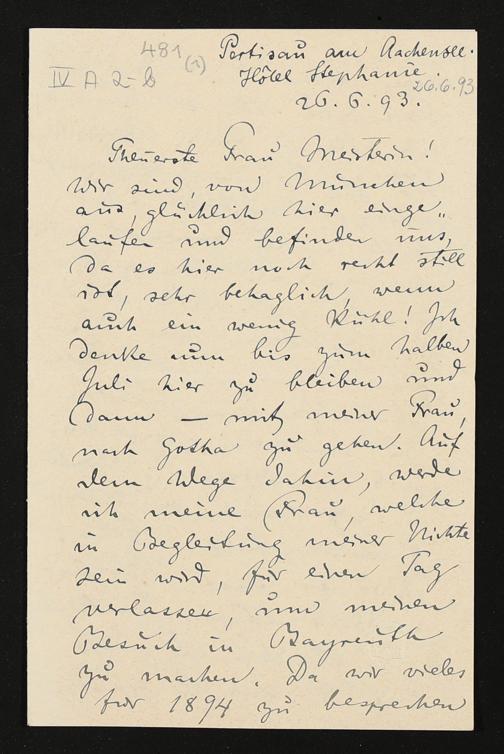 481 (1)
IV A 2-b
Pertisau am Aachensee.
Hôtel Stephanie.
26.6.93
26.6.93.
Theuerste Frau Meisterin!
Wir sind, von München
aus, glücklich hier einge„
laufen und befinden uns,
da es hier noch recht still
ist, sehr behaglich, wenn
auch ein wenig kühl! Ich
denke nun bis zum halben
Juli hier zu bleiben und
dann — mit meiner Frau,
nach Gotha zu gehen. Auf
dem Wege dahin, werde
ich meine Frau, welche
in Begleitung meiner Nichte
sein wird, für einen Tag
verlassen, um meinen
Besuch in Bayreuth
zu machen. Da wir vieles
für 1894 zu besprechen